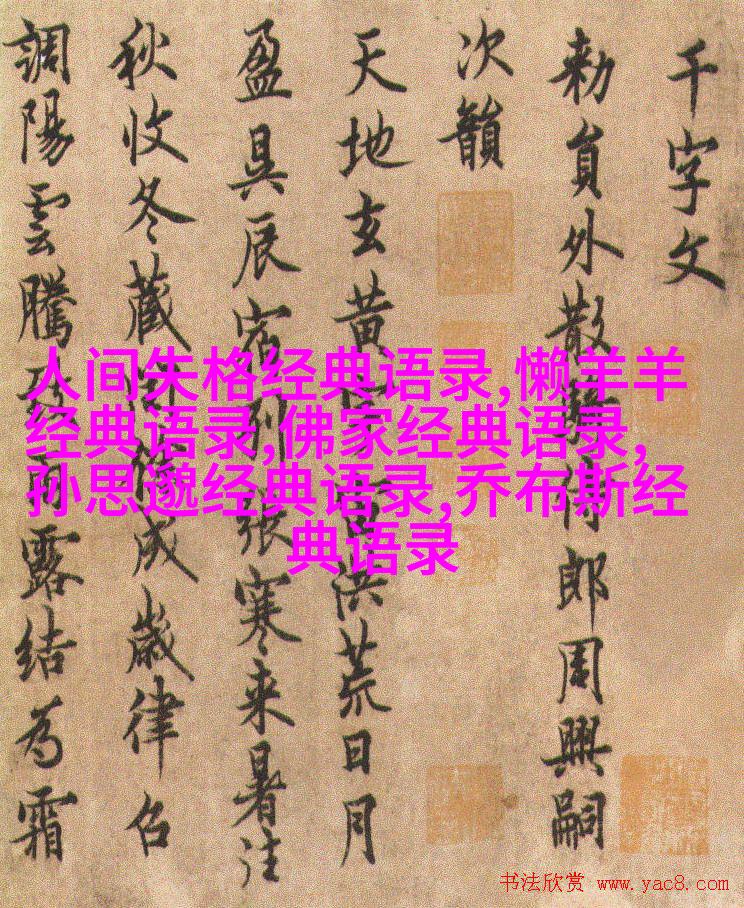 千字文
勅員外散騎侍郎周興嗣
次韻
天地玄黃宇宙洪荒日月
盈昃辰宿列張寒来暑往
秋收冬藏閏餘成歲律召
調陽雲騰致雨露結為霜
人间失格经典语录,懒羊羊
经典语录,佛家经典语录,
孙思邈经典语录,乔布斯经
典语录
书法欣赏 www.yac8.com